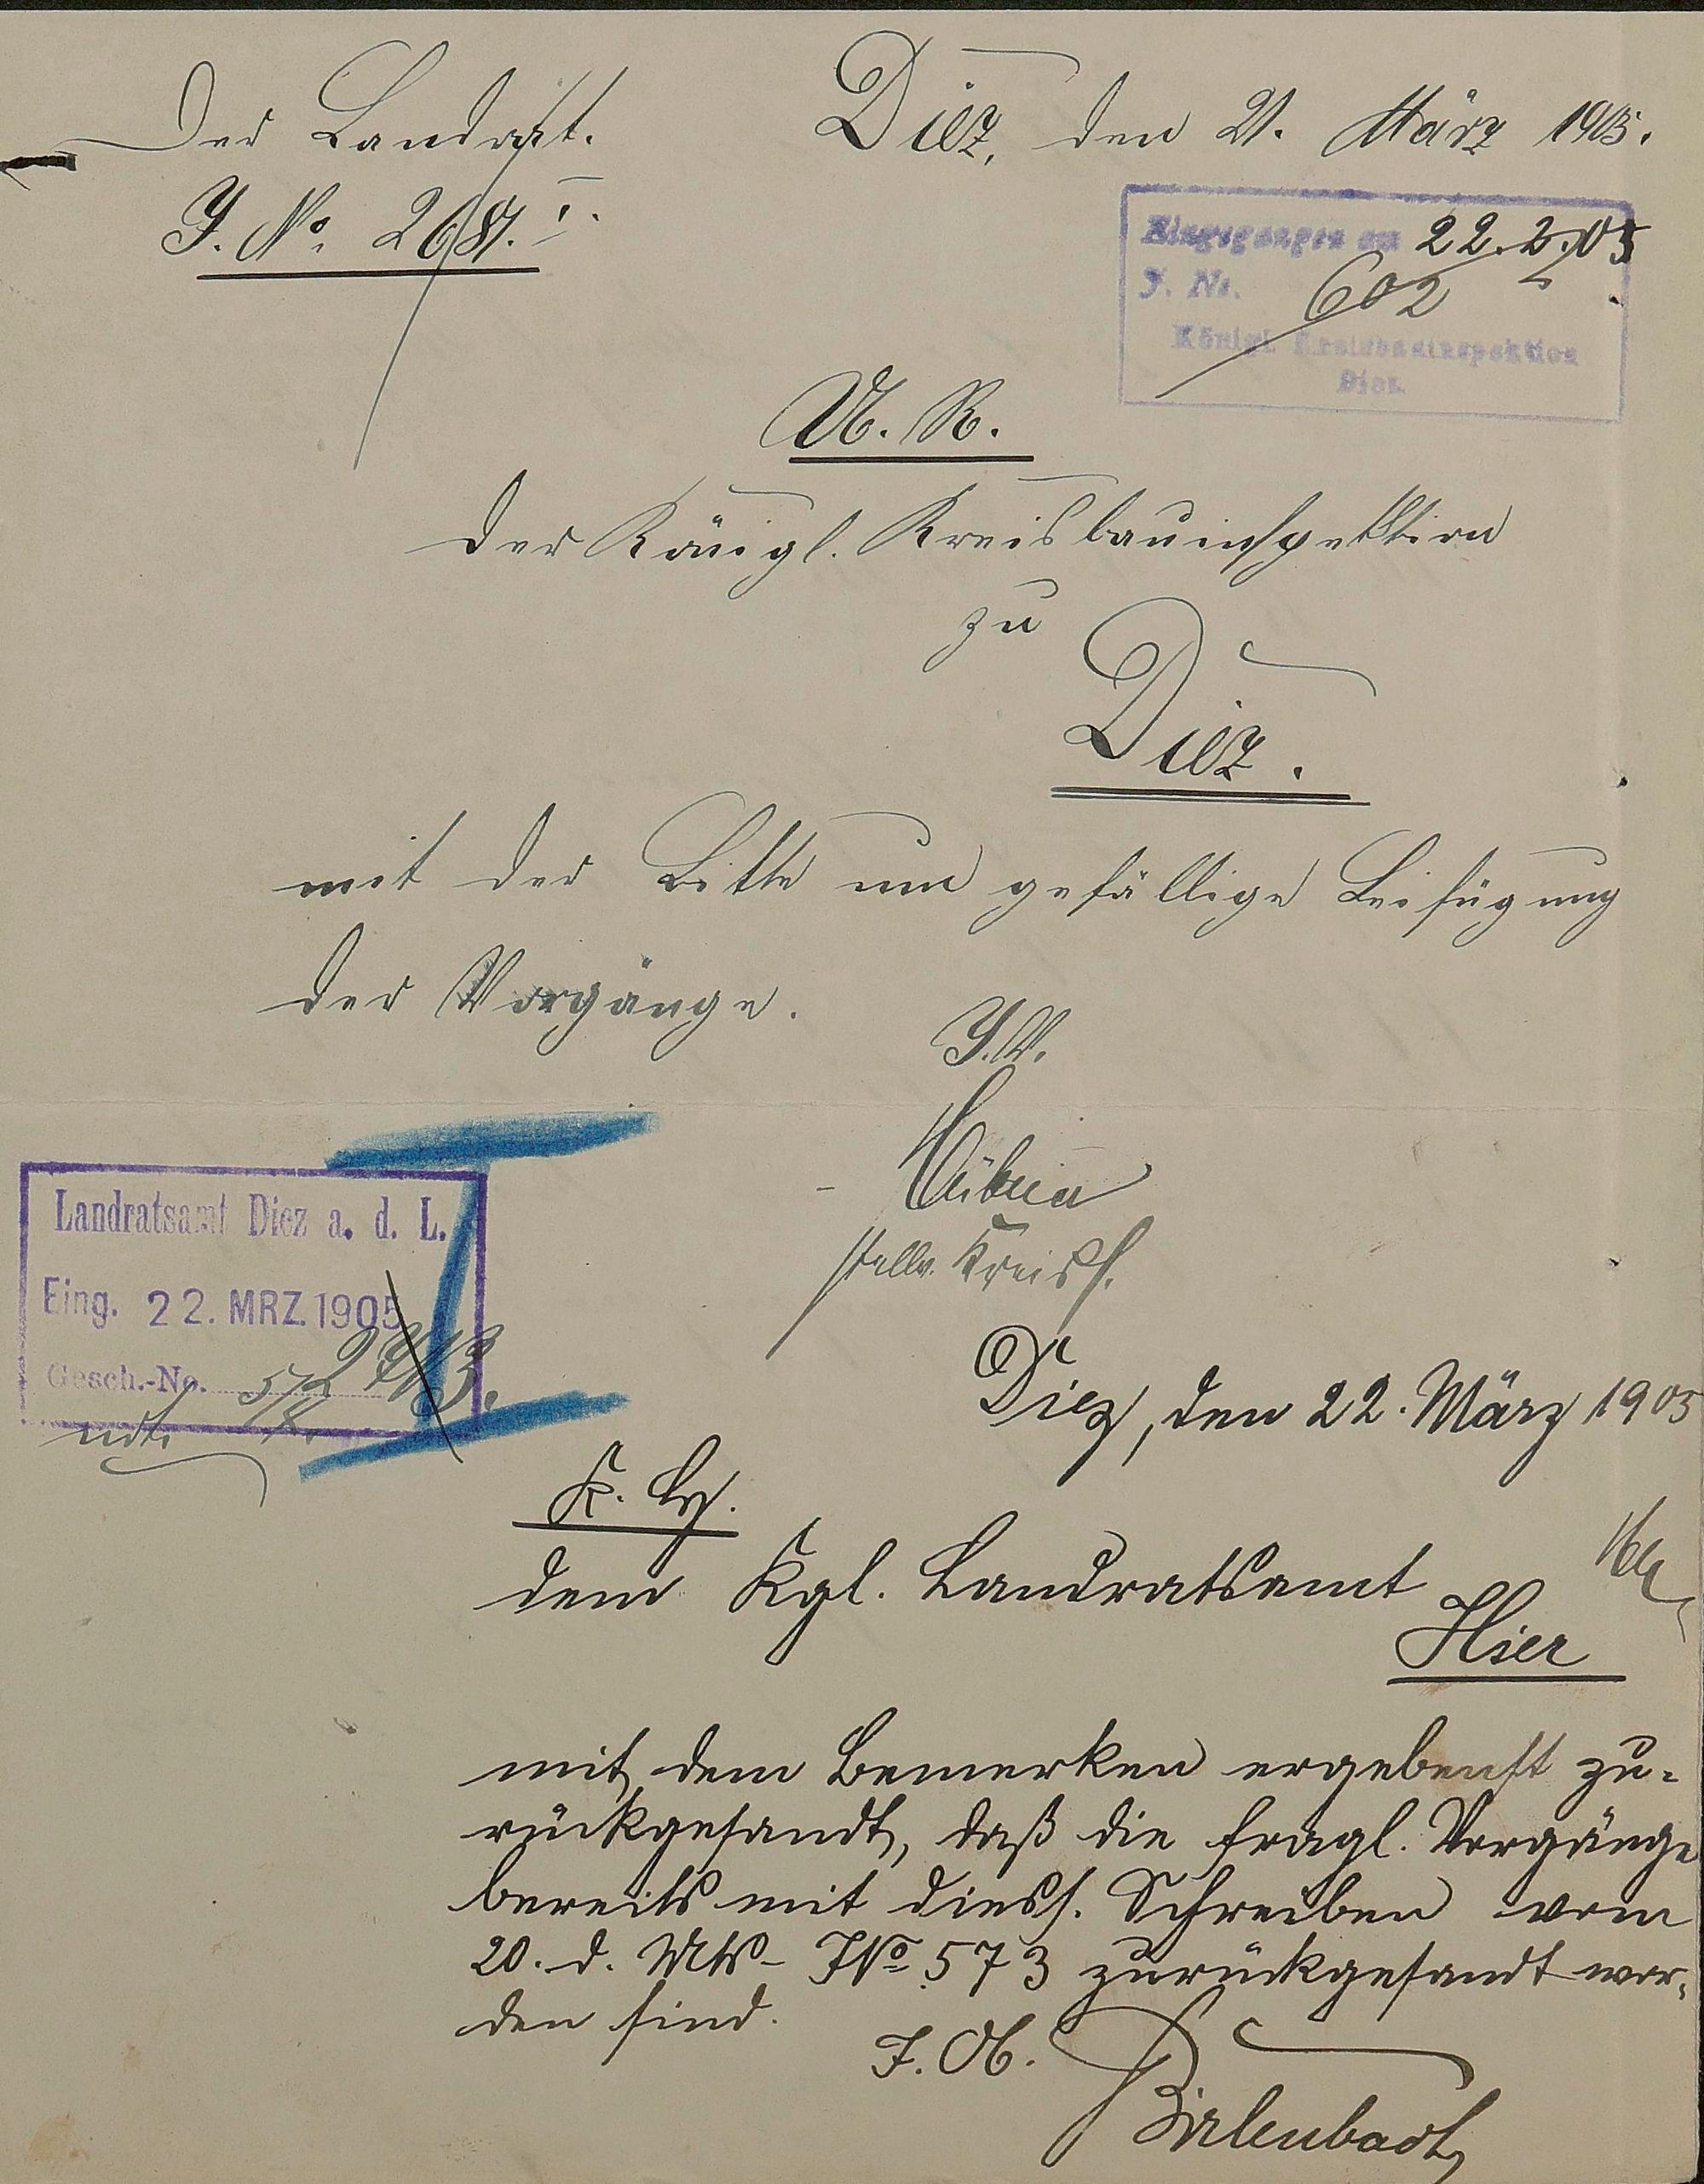 Der Landrat.
J. No. 2681. I.
Diez, den 21. März 1905.
Eingegangen am 22.3.05
J. Nr. 602
Königl. Kreisbauinspektion
Diez.
U. R.
der Königl. Kreisbauinspektion
zu
Diez.
mit der Bitte um gefällige Beifügung
der Vorgänge.
J. V.
stellv. Kreiss.
Landratsamt Diez a. d. L.
Eing. 22. MRZ. 1905
Gesch.-No.
Diez, den 22. März 1905
K. Hd.
dem Kgl. Landratsamt
Hier
mit dem Bemerken ergebenst zu-
rückgesandt, daß die fragl. Vorgänge
bereits mit diess. Schreiben vom
20. d. Mts - JNo 573 zurückgesandt wor-
den sind.
J. A.
Birlenbach